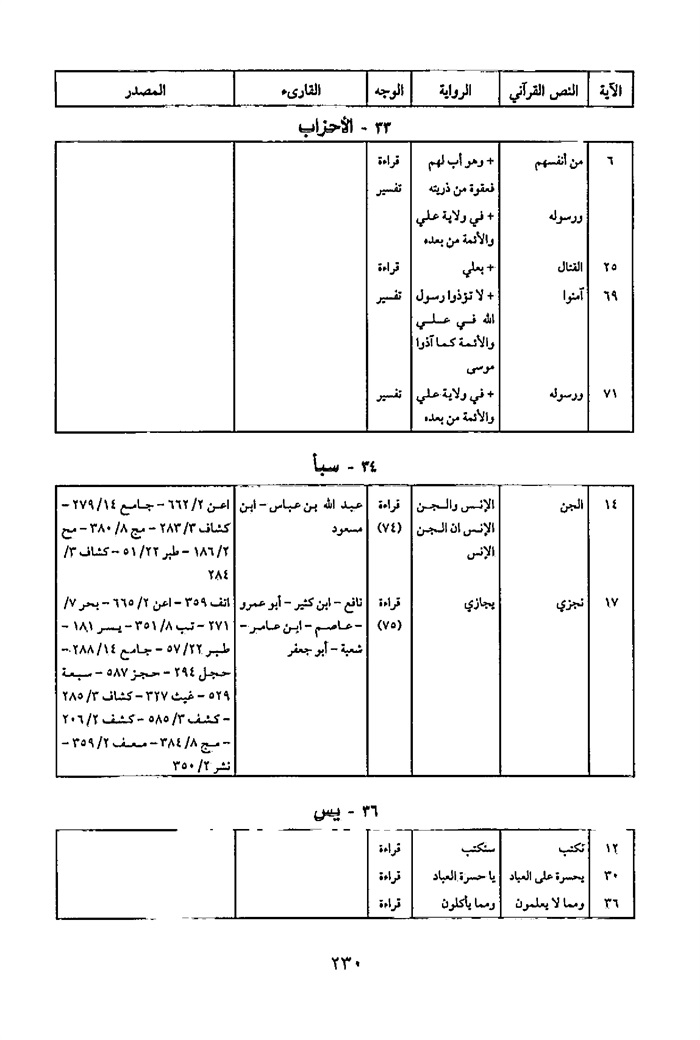 الآية | النص القرآني | الرواية | الوجه | القارىء | المصدر
٣٣ - الأحزاب
٦ | من أنفسهم | + وهو أب لهم | قراءة
فعقوة من ذريته | تفسير
ورسوله | + في ولاية علي
والأئمة من بعده
٢٥ | القتال | + بعلي | قراءة
٦٩ | آمنوا | + لا تؤذوا رسول | تفسير
الله في علي
والأئمة كما آذوا
موسى
٧١ | ورسوله | + في ولاية علي | تفسير
والأئمة من بعده
٣٤ - سبأ
١٤ | الجن | الإنس والجن | قراءة | عبد الله بن عباس - ابن | اعن ٢/ ٦٦٢ - جامع ١٤/ ٢٧٩ -
الإنس ان الجن | (٧٤) | مسعود | كشاف ٣/ ٢٨٣ - مج ٨/ ٣٨٠ - مح
الإنس | ٢/ ١٨٦ - طبر ٢٢/ ٥١ - كشاف ٣/
٢٨٤
١٧ | نجزي | يجازي | قراءة | نافع - ابن كثير - أبو عمرو | اتف ٣٥٩ - اعن ٢/ ٦٦٥ - بحر ٧/
(٧٥) | - عاصم - ابن عامر - | ٢٧١ - تب ٨/ ٣٥١ - يسر ١٨١ -
شعبة - أبو جعفر | طبر ٢٢/ ٥٧ - جامع ١٤/ ٢٨٨ -
حجل ٢٩٤ - حجز ٥٨٧ - سبعة
٥٢٩ - غيث ٣٢٧ - كشاف ٣/ ٢٨٥
- كشف ٣/ ٥٨٥ - كشف ٢/ ٢٠٦
- مج ٨/ ٣٨٤ - معف ٢/ ٣٥٩ -
نشر ٢/ ٣٥٠
٣٦ - يس
١٢ | نكتب | سنكتب | قراءة
٣٠ | يحسرة على العباد | يا حسرة العباد | قراءة
٣٦ | ومما لا يعلمون | ومما يأكلون | قراءة
٢٣٠